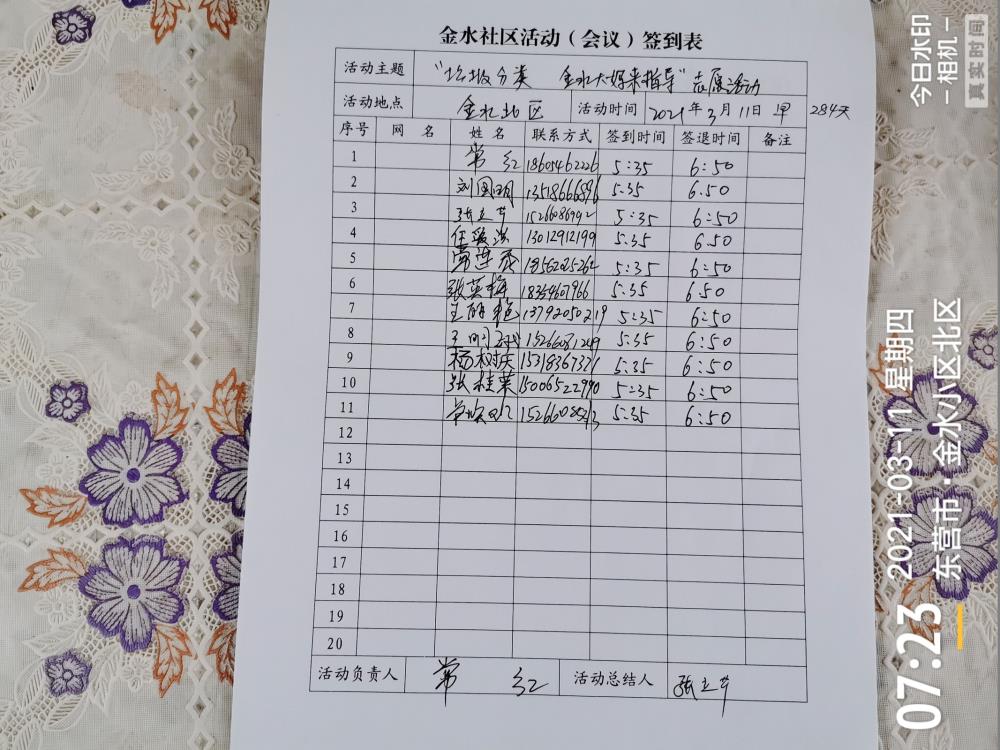 金水社区活动（会议）签到表
活动主题 “垃圾分类 金水大好来指导”志愿活动
活动地点 金水北区 活动时间 2021年3月11日 早 284天
序号 网 名 姓 名 联系方式 签到时间 签退时间 备注
1 常 红 18605462226 5:35 6:50
2 刘国明 13518666896 5:35 6:50
3 张立芹 5:35 6:50
4 13012912199 5:35 6.50
5 常莲 18562025262 5:35 6:50
6 张英梅 18354607966 5:35 6:50
7 王 13792050219 5:35 6:50
8 15266081249 5:35 6:50
9 杨树庆 15318367321 5:35 6:50
10 张桂荣 15006522990 5:35 6:50
11 5:35 6:50
12
13
14
15
16
17
18
19
20
活动负责人 常 红 活动总结人 张立芹
今日水印
－相机－
真实时间
07:23
2021-03-11 星期四
东营市·金水小区北区